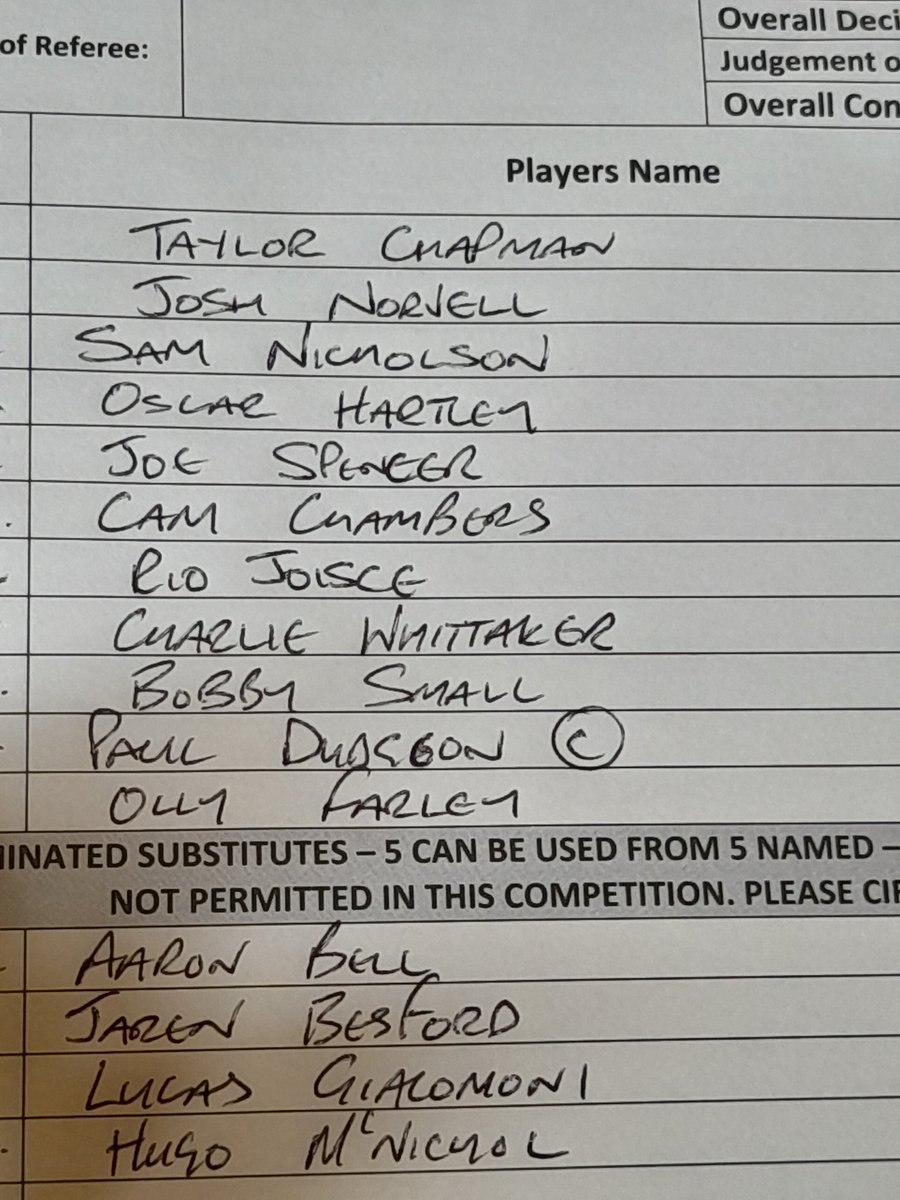 of Referee:
Overall Deci
Judgement o
Overall Con
Players Name
TAYLOR CHAPMAN
JOSH NORVELL
SAM NICHOLSON
OSCAR HARTLEY
JOE SPENCER
CAM CHAMBERS
RIO JOISCE
CHARLIE WHITTAKER
BOBBY SMALL
PAUL DUDGEON C
OLLY FARLEY
MINATED SUBSTITUTES – 5 CAN BE USED FROM 5 NAMED –
NOT PERMITTED IN THIS COMPETITION. PLEASE CIR
AARON BELL
JAREN BESFORD
LUCAS GIACOMONI
HUGO McNICHOL